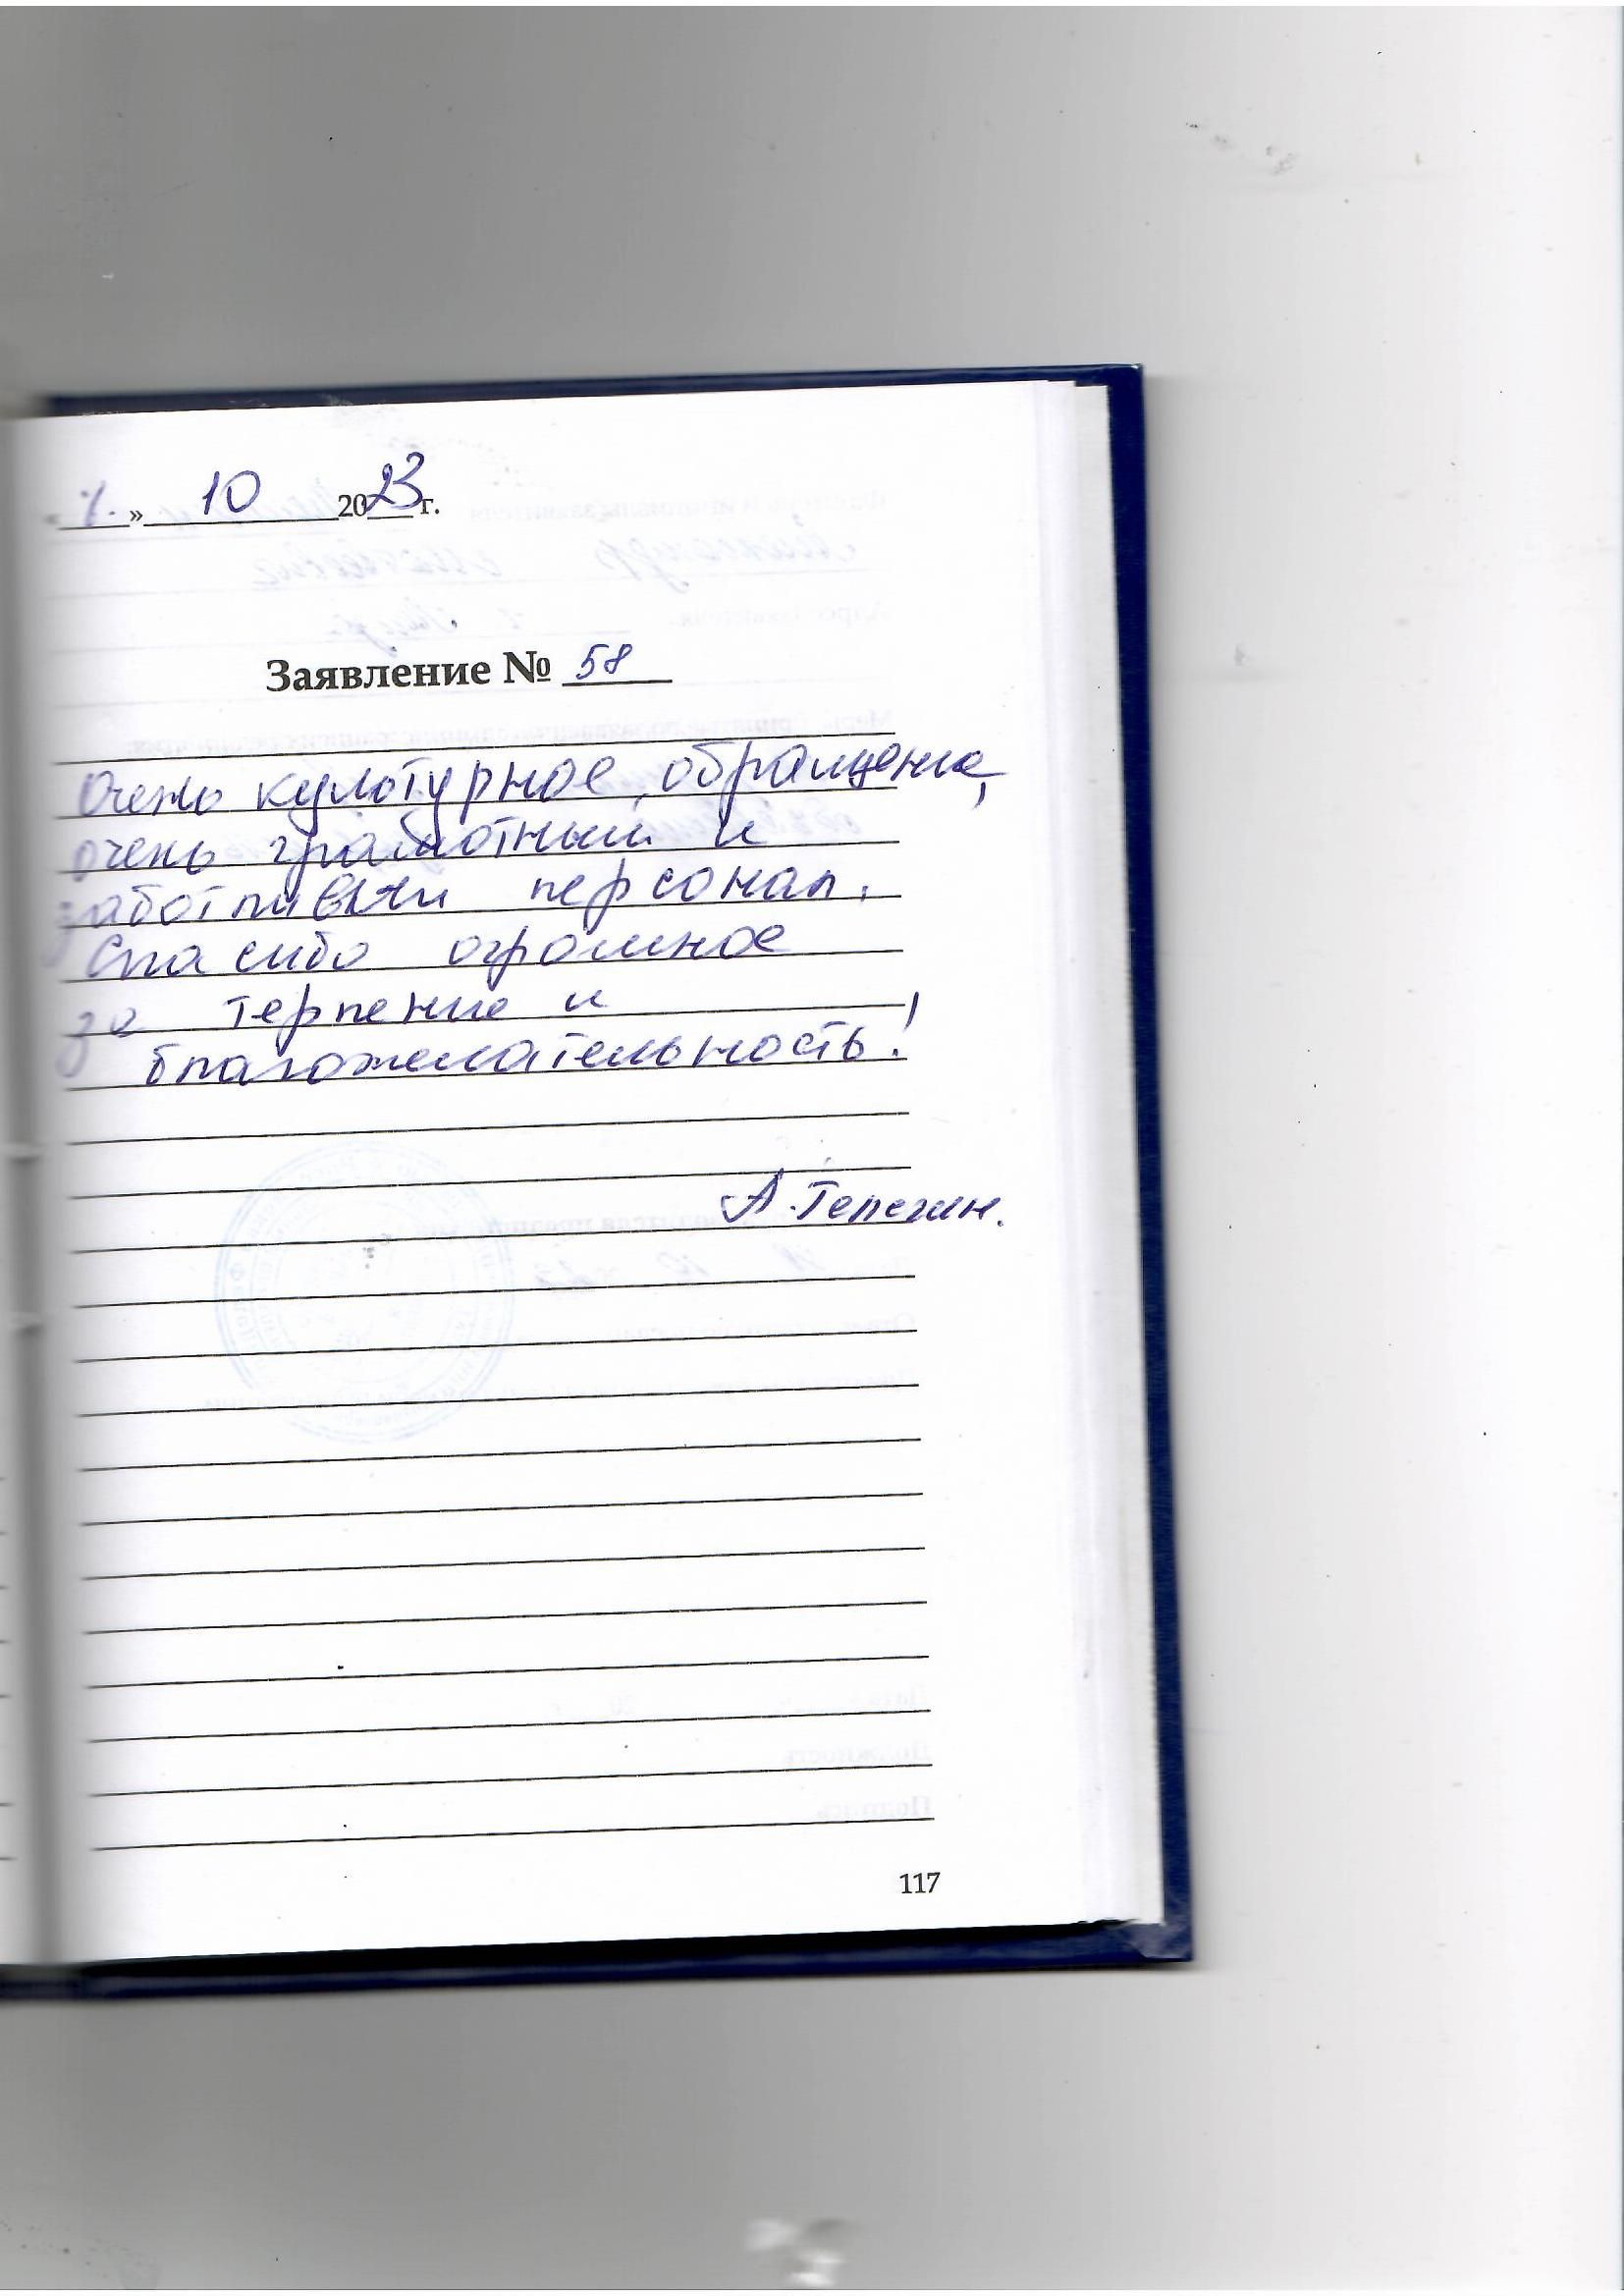 » 10 2023 г.
Заявление № 58
Очень культурное обращение,
очень грамотный и
заботливый персонал.
Спасибо огромное
за терпение и
благожелательность!
117